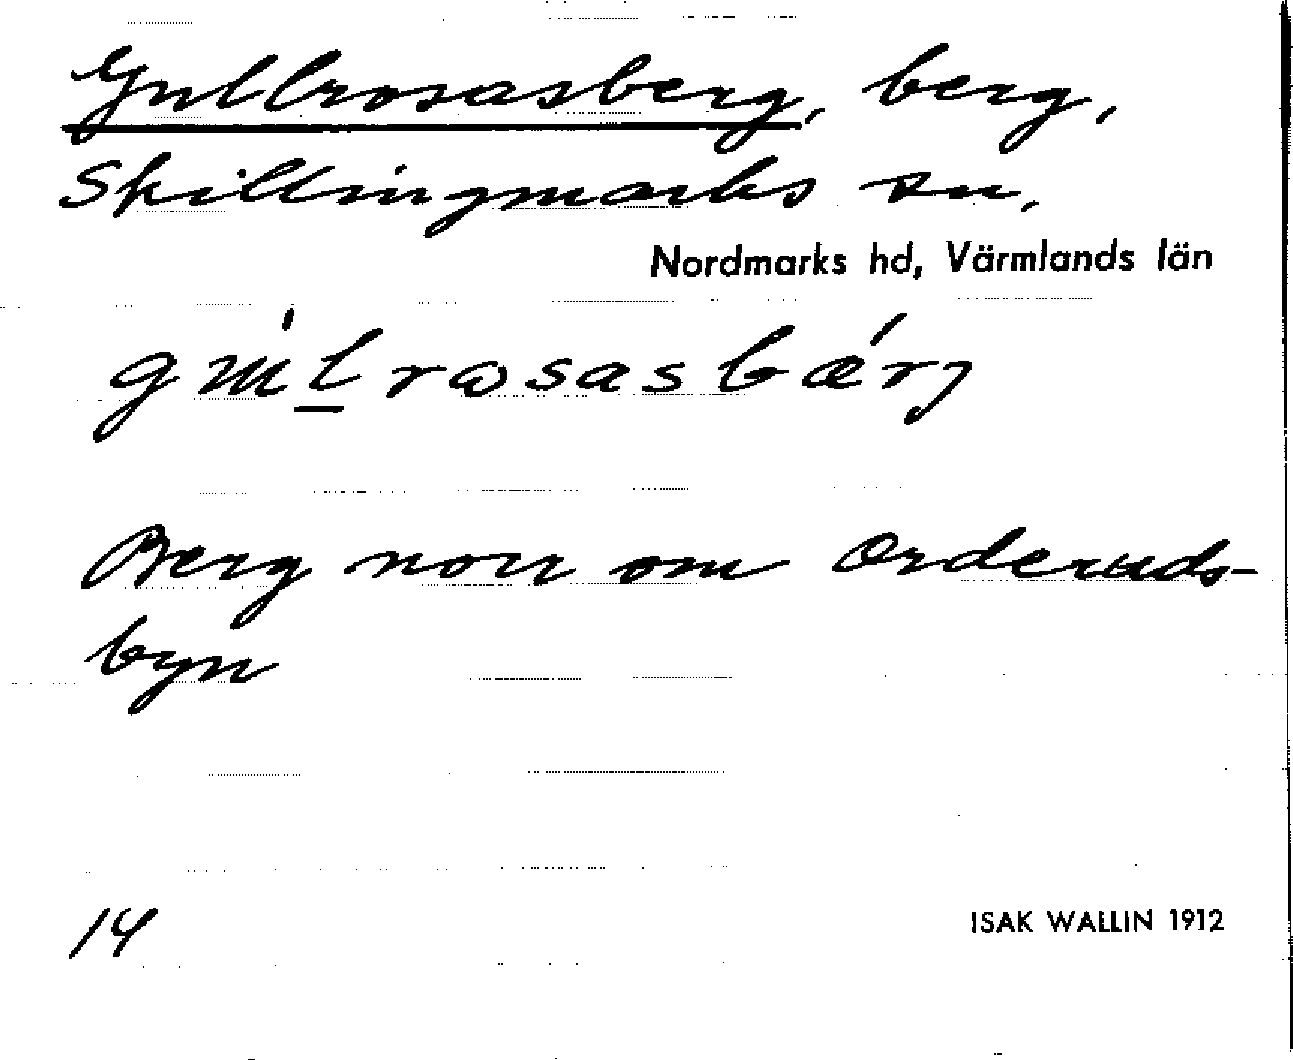 Gullrosasberg, berg,
Skillingmarks sn,
Nordmarks hd, Värmlands län
Berg norr om Orderuds-
byn
14
ISAK WALLIN 1912